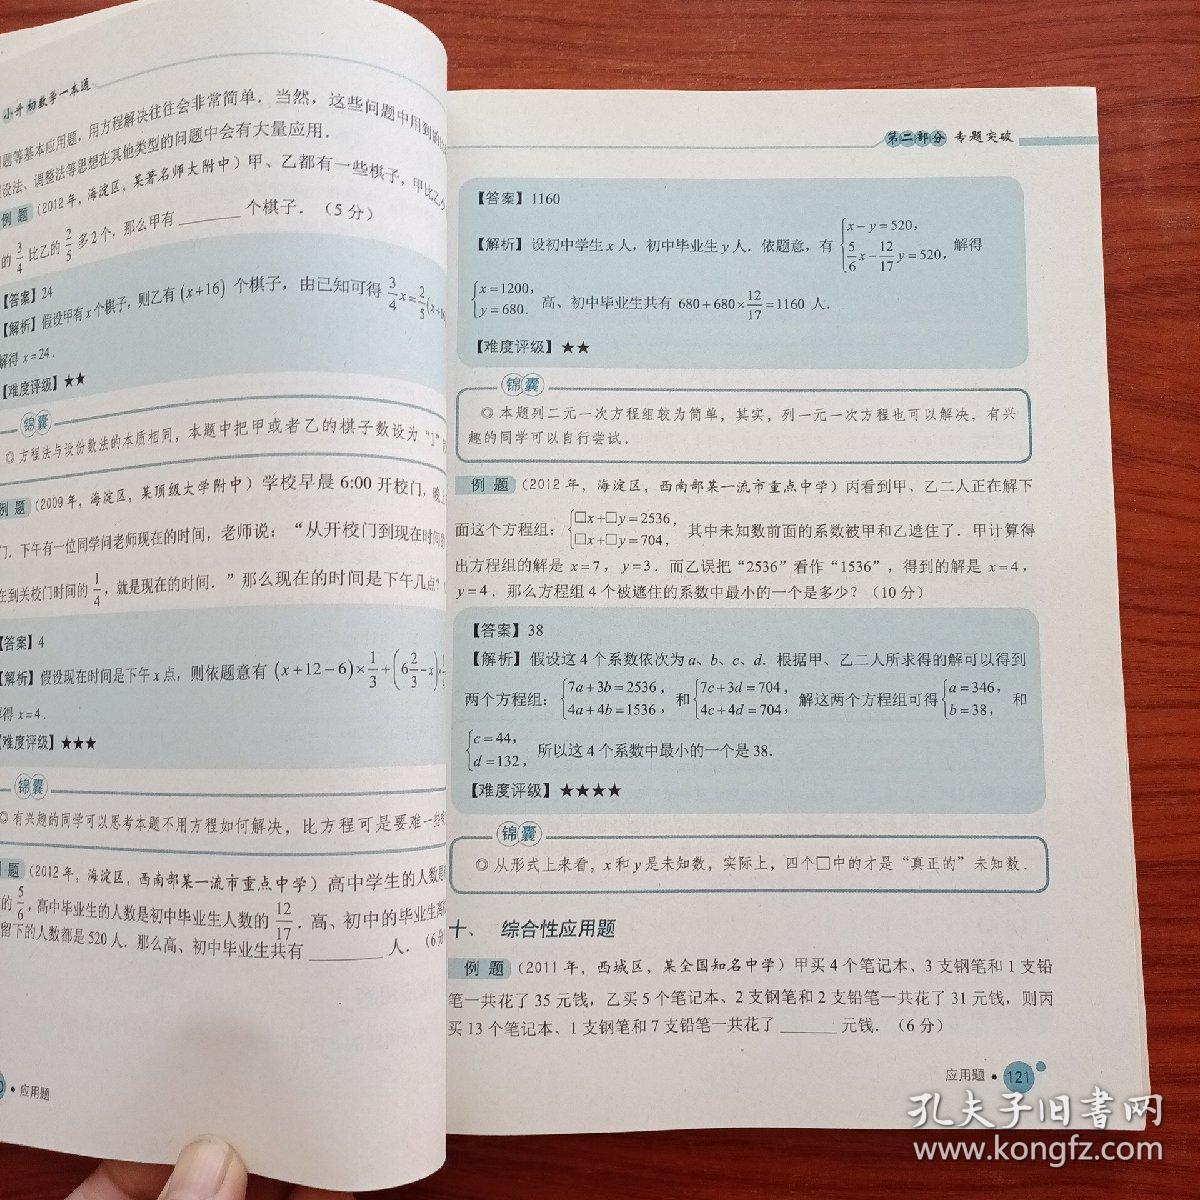 小升初数学一本通
题等基本应用题，用方程解决往往会非常简单．当然，这些问题中用到的
设法、调整法等思想在其他类型的问题中会有大量应用．
例 题 (2012年，海淀区，某著名师大附中) 甲、乙都有一些棋子，甲比乙
的 3/4 比乙的 2/5 多2个，那么甲有______个棋子．(5分)
【答案】24
【解析】假设甲有x个棋子，则乙有(x+16)个棋子，由已知可得 3/4 x = 2/5 (x+
解得 x=24．
【难度评级】★★
锦囊
◎ 方程法与设份数法的本质相同，本题中把甲或者乙的棋子数设为“1”
例 题 (2009年，海淀区，某顶级大学附中) 学校早晨6:00开校门，晚上
门．下午有一位同学问老师现在的时间，老师说：“从开校门到现在时间的
在到关校门时间的 1/4，就是现在的时间．”那么现在的时间是下午几点？
【答案】4
【解析】假设现在时间是下午x点，则依题意有 (x+12-6)×1/3+(6 2/3-x)
得 x=4．
【难度评级】★★★
锦囊
◎ 有兴趣的同学可以思考本题不用方程如何解决，比方程可是要难一些
题 (2012年，海淀区，西南部某一流市重点中学) 高中学生的人数
的 5/6，高中毕业生的人数是初中毕业生人数的 12/17．高、初中的毕业生离
留下的人数都是520人．那么高、初中毕业生共有________人．(6分
• 应用题
第二部分 专题突破
【答案】1160
【解析】设初中学生x人，初中毕业生y人．依题意，有 { x-y=520， 5/6 x - 12/17 y=520， 解得
{ x=1200， y=680． 高、初中毕业生共有 680+680×12/17=1160 人．
【难度评级】★★
锦囊
◎ 本题列二元一次方程组较为简单，其实，列一元一次方程也可以解决．有兴
趣的同学可以自行尝试．
例 题 (2012年，海淀区，西南部某一流市重点中学) 丙看到甲、乙二人正在解下
面这个方程组：{ □x+□y=2536， □x+□y=704， 其中未知数前面的系数被甲和乙遮住了．甲计算得
出方程组的解是 x=7，y=3．而乙误把“2536”看作“1536”，得到的解是 x=4，
y=4．那么方程组4个被遮住的系数中最小的一个是多少？(10分)
【答案】38
【解析】假设这4个系数依次为a、b、c、d．根据甲、乙二人所求得的解可以得到
两个方程组：{ 7a+3b=2536， 4a+4b=1536， 和 { 7c+3d=704， 4c+4d=704， 解这两个方程组可得 { a=346， b=38， 和
{ c=44， d=132， 所以这4个系数中最小的一个是38．
【难度评级】★★★★
锦囊
◎ 从形式上来看，x和y是未知数，实际上，四个□中的才是“真正的”未知数．
十、 综合性应用题
例 题 (2011年，西城区，某全国知名中学) 甲买4个笔记本、3支钢笔和1支铅
笔一共花了35元钱，乙买5个笔记本、2支钢笔和2支铅笔一共花了31元钱，则丙
买13个笔记本、1支钢笔和7支铅笔一共花了______元钱．(6分)
应用题 • 121
孔夫子旧书网
www.kongfz.com